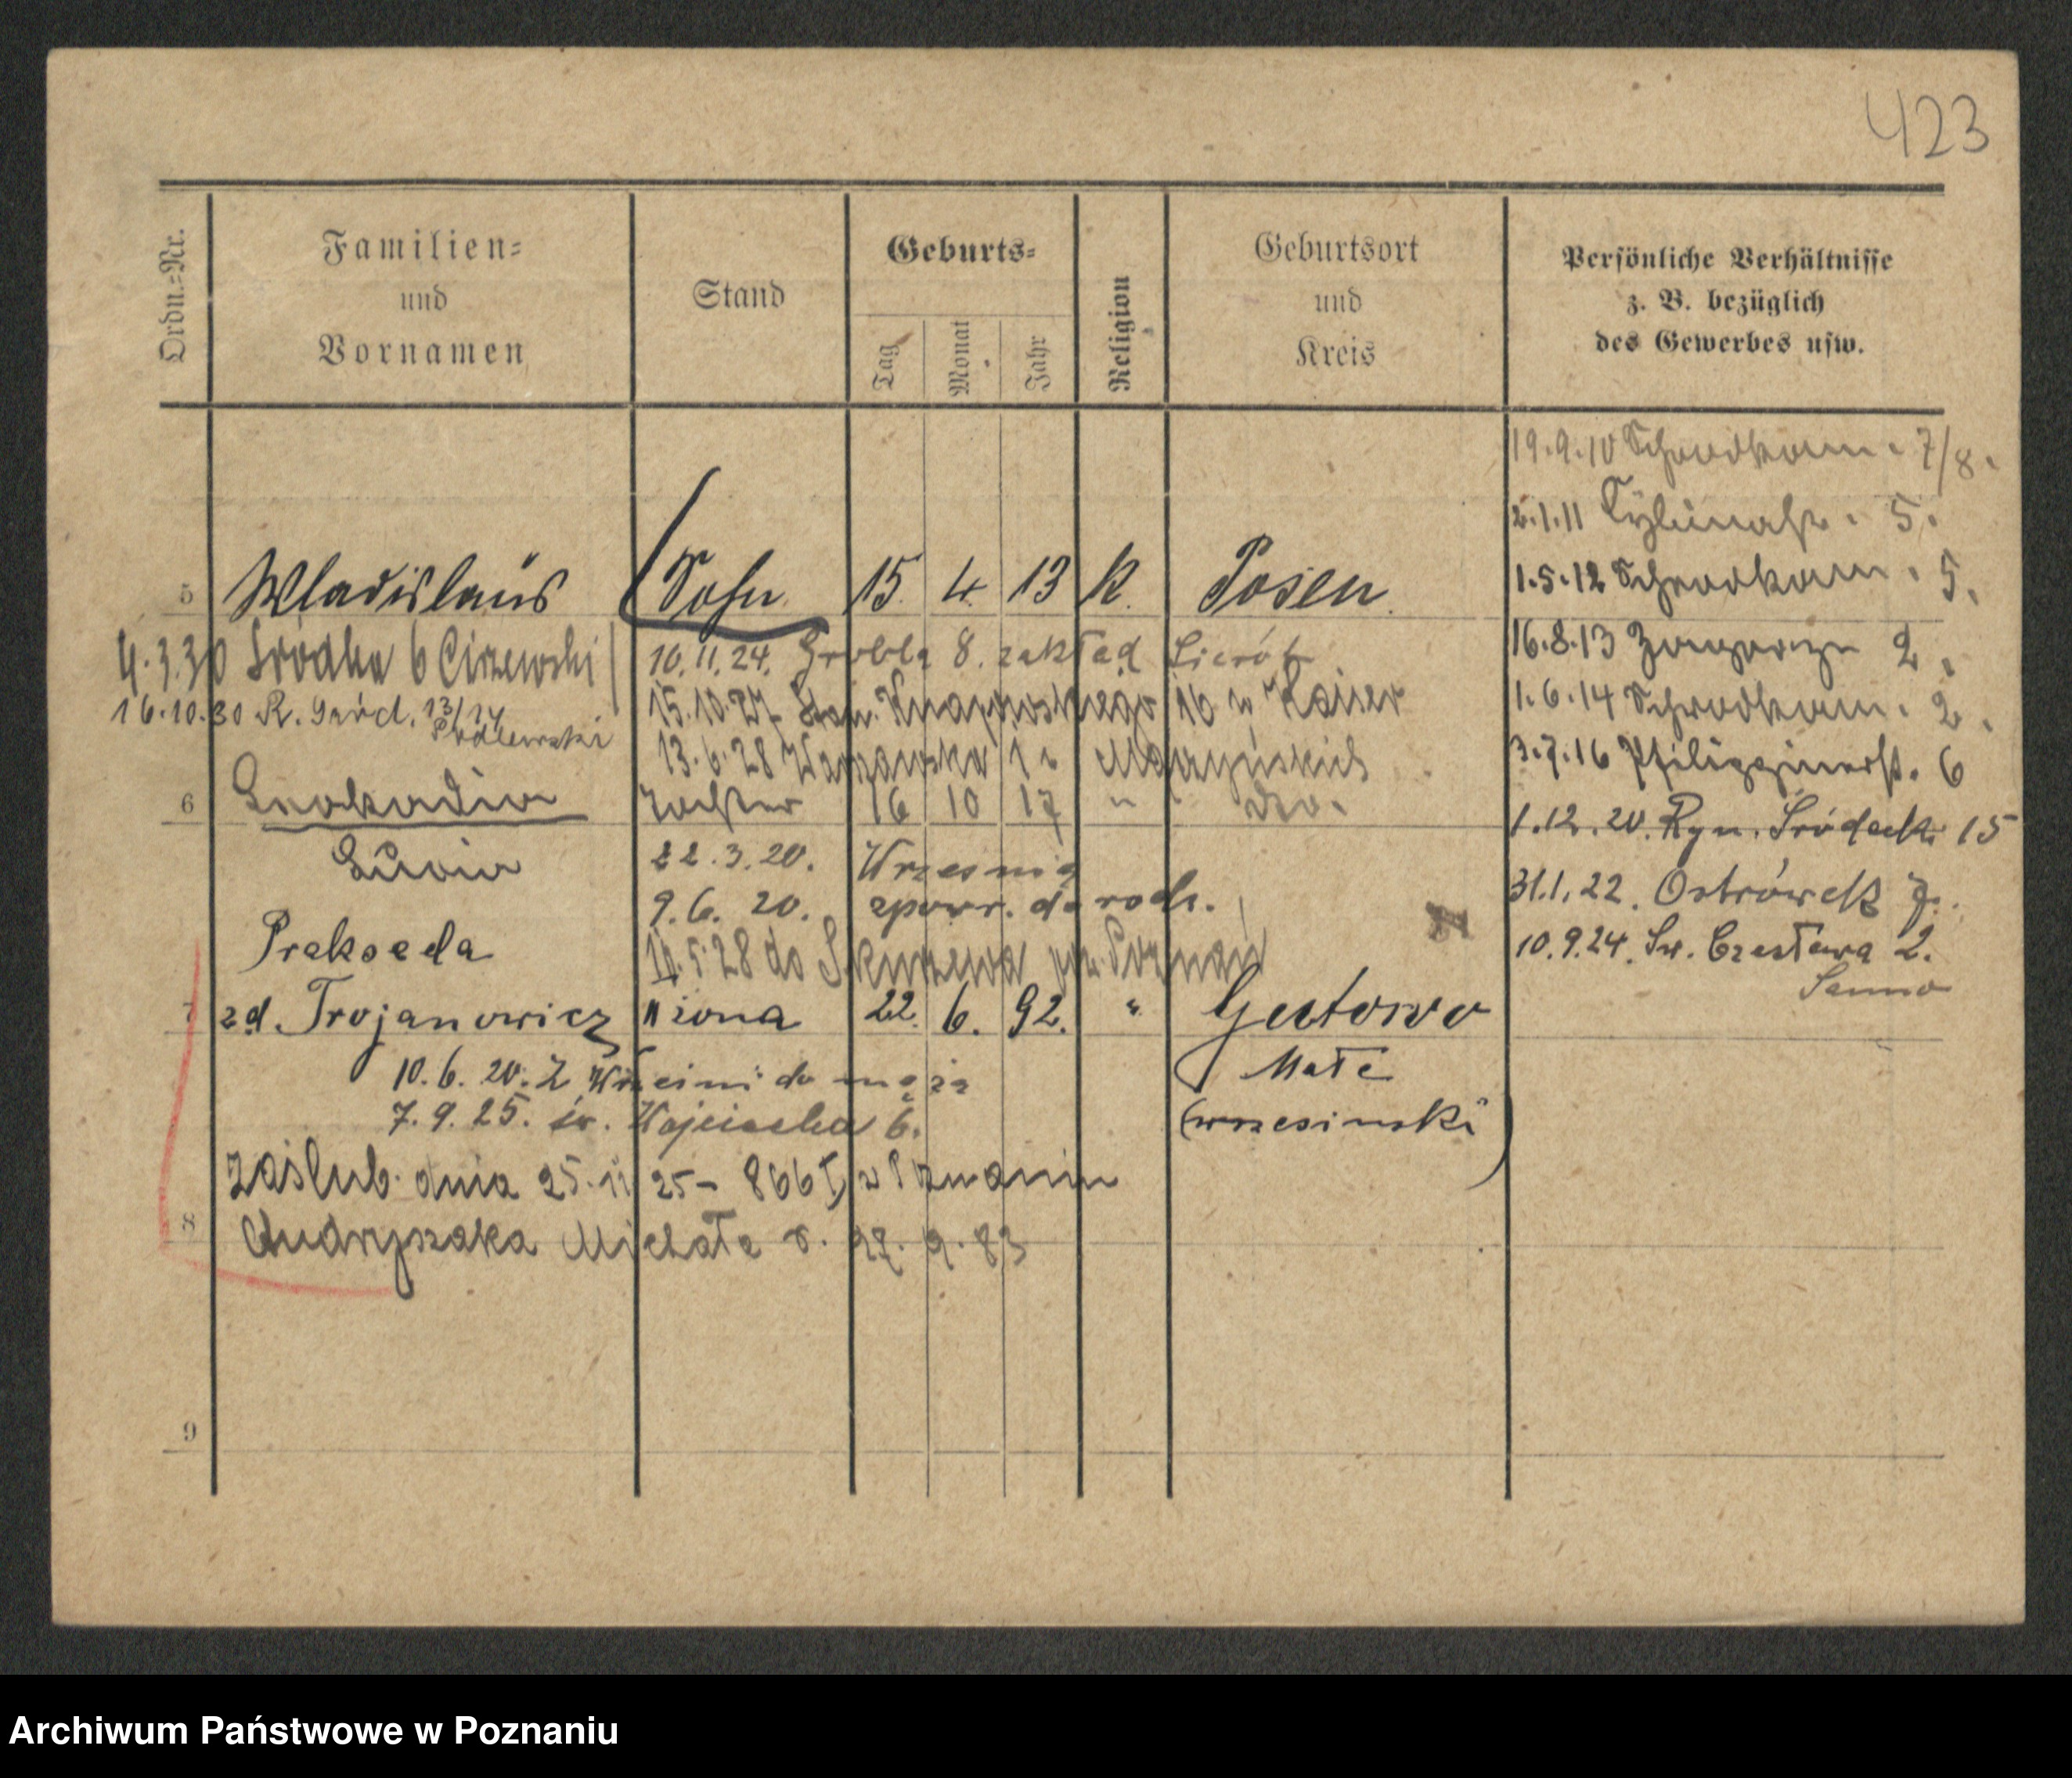 423
Ordn.-Nr.
Familien-
und
Vornamen
Stand
Geburts-
Tag
Monat
Jahr
Religion
Geburtsort
und
Kreis
Persönliche Verhältnisse
z. B. bezüglich
des Gewerbes usw.
19.9.10 Schrodkam. 7/8.
2.1.11 Cybinastr. 5.
1.5.12 Schrodkam. 5.
16.8.13 Zawady 2.
1.6.14 Schrodkam. 2.
3.7.16 Philippinerstr. 6
1.12.20. Ryn. Śródeck. 15
31.1.22. Ostrówek 7.
10.9.24. Św. Czesława 2.
5 Wladislaus Sohn 15. 4. 13 K. Posen.
4.3.30 Śródka 6 Ciszewski
10.11.24. Grobla 8. zakład Sierót
16.10.30 R. Gród. 13/14
15.10.27 Knapowskiego 16 u Kaiser
13.6.28 Warszawska 1 u
6 Leokadia Tochter 16 10 17 " dto.
Lucia
22.3.20. Wrześnią
9.6.20. zpowr. do rodz.
Prakseda
10.5.28 do Skórzewa Poznań
7 zd. Trojanowicz żona 22. 6. 92. " Gutowo
Małe
(wrzesinski)
10.6.20. Z Wrześni do męża
7.9.25. św. Wojciecha 6.
zaślub. dnia 25.11 25 – 866 w Poznaniu
8 Andrzejaka Michała 27. 9. 83
9
Archiwum Państwowe w Poznaniu